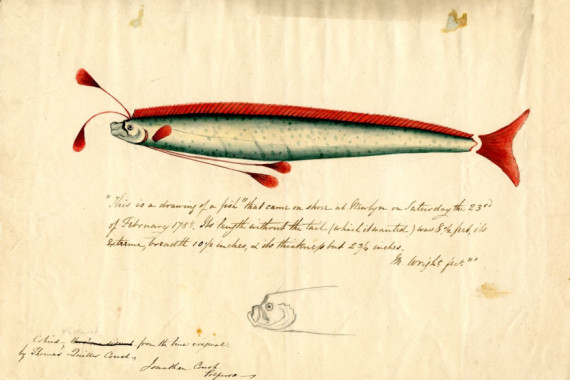 "This is a drawing of a fish" that came on shore at Newlyn on Saturday the 23rd
of February 1788. Its length without the tail (which it wanted) was 8½ feet, its
extreme, breadth 10½ inches, & its thickness but 2¾ inches.
M. Wright fec.""
from the line original
by Thomas Quiller Couch
Jonathan Couch
Polperro